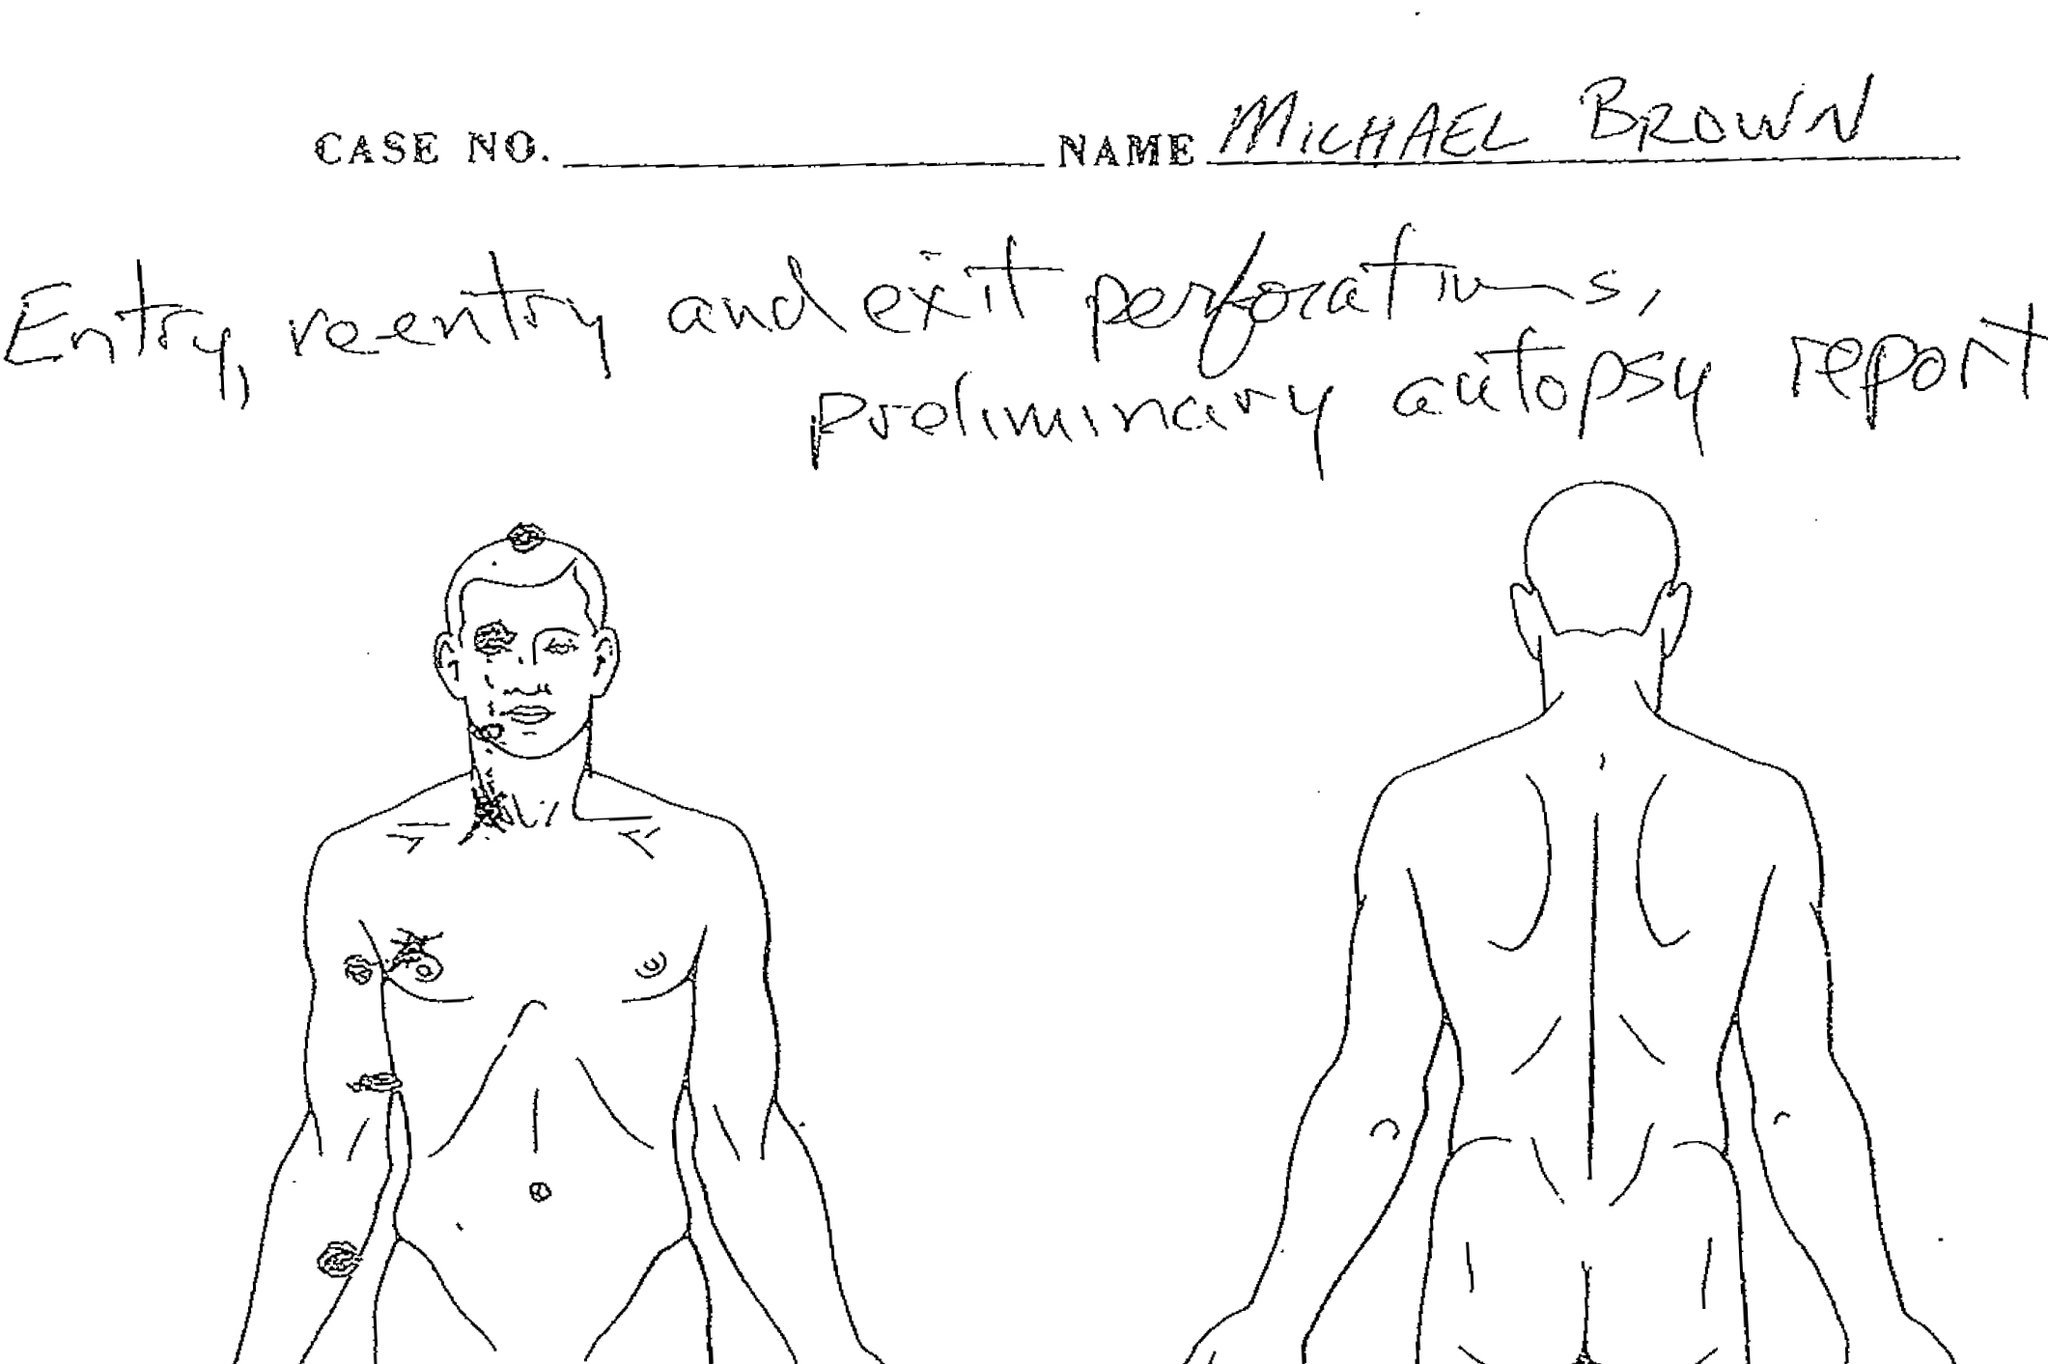 CASE NO. NAME MICHAEL BROWN
Entry, re-entry and exit perforations,
preliminary autopsy report